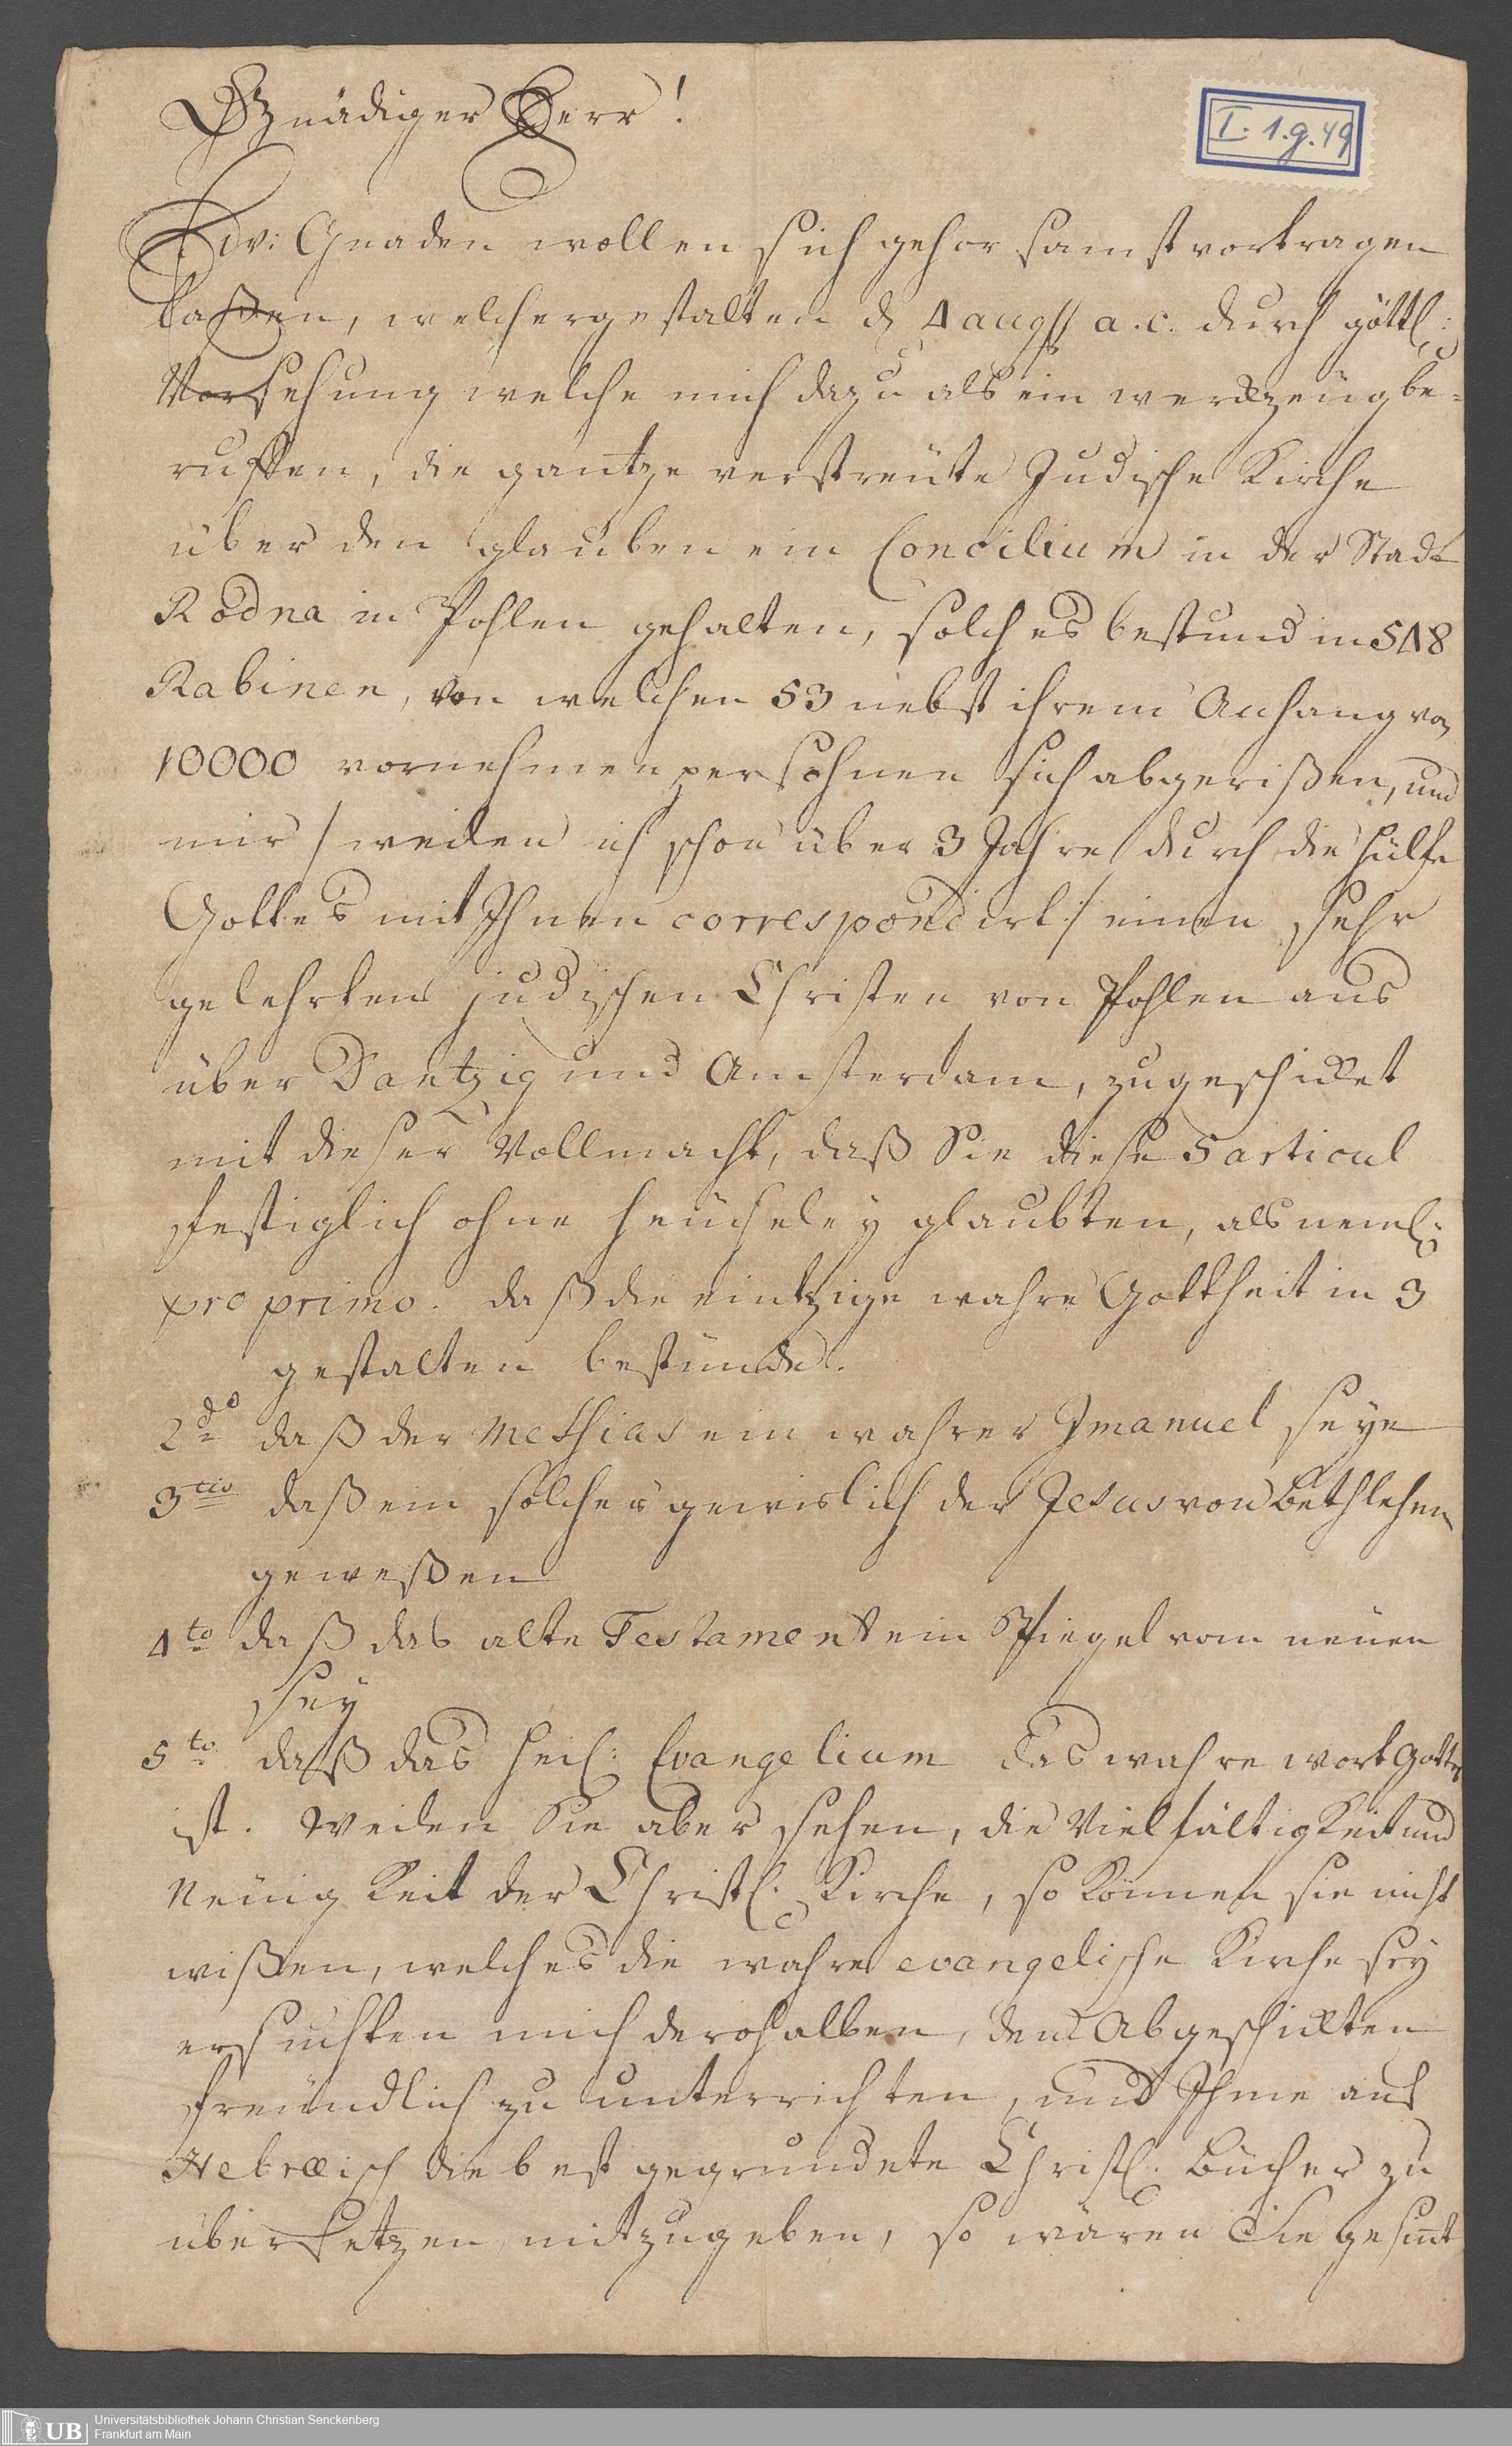 Gnädiger Herr!
I. 1. g. 49
Ew: Gnaden wollen sich gehorsamst vortragen
laßen, welchergestalten d 4 aug a. c. durch göttl:
Vorsehung welche mich dazu als ein werckzeüg be-
ruffen, die gantze verstreüte Judische Kirche
über den glauben ein Concilium in der Stadt
Rodna in Pohlen gehalten, solches bestund in 548
Rabinen, von welchen 53 nebst ihrem Anhang von
10000 vornehmen persohnen sich abgerißen, und
mir / weilen ich schon über 3 Jahre durch die hülfe
Gottes mit Ihnen correspondirt / einen sehr
gelehrten judischen Christen von Pohlen aus
über Dantzig und Amsterdam, zugeschicket
mit dieser Vollmacht, daß Sie diese 5 articul
festiglich ohne heücheley glaubten, als neml:
pro primo. daß die eintzige wahre Gottheit in 3
gestalten bestünde.
2do daß der Meßias ein wahrer Imanuel seye
3tio daß ein solcher gewislich der Jesus von Bethlehem
geweßen
4to daß das alte Testament ein Spiegel vom neuen
sey
5to daß das heil: Evangelium das wahre wort Gottes
ist. Weilen Sie aber sehen, die Vielfältigkeit und
Neüigkeit der Christl. Kirche, so können sie nicht
wißen, welches die wahre evangelische Kirche sey
ersuchten mich derohalben, dem Abgeschickten
freündlich zu unterrichten, und Ihme auf
Hebræisch die best gegrundete Christl. Bücher zu
übersetzen mitzugeben, so wären Sie gesint
UB
Universitätsbibliothek Johann Christian Senckenberg
Frankfurt am Main